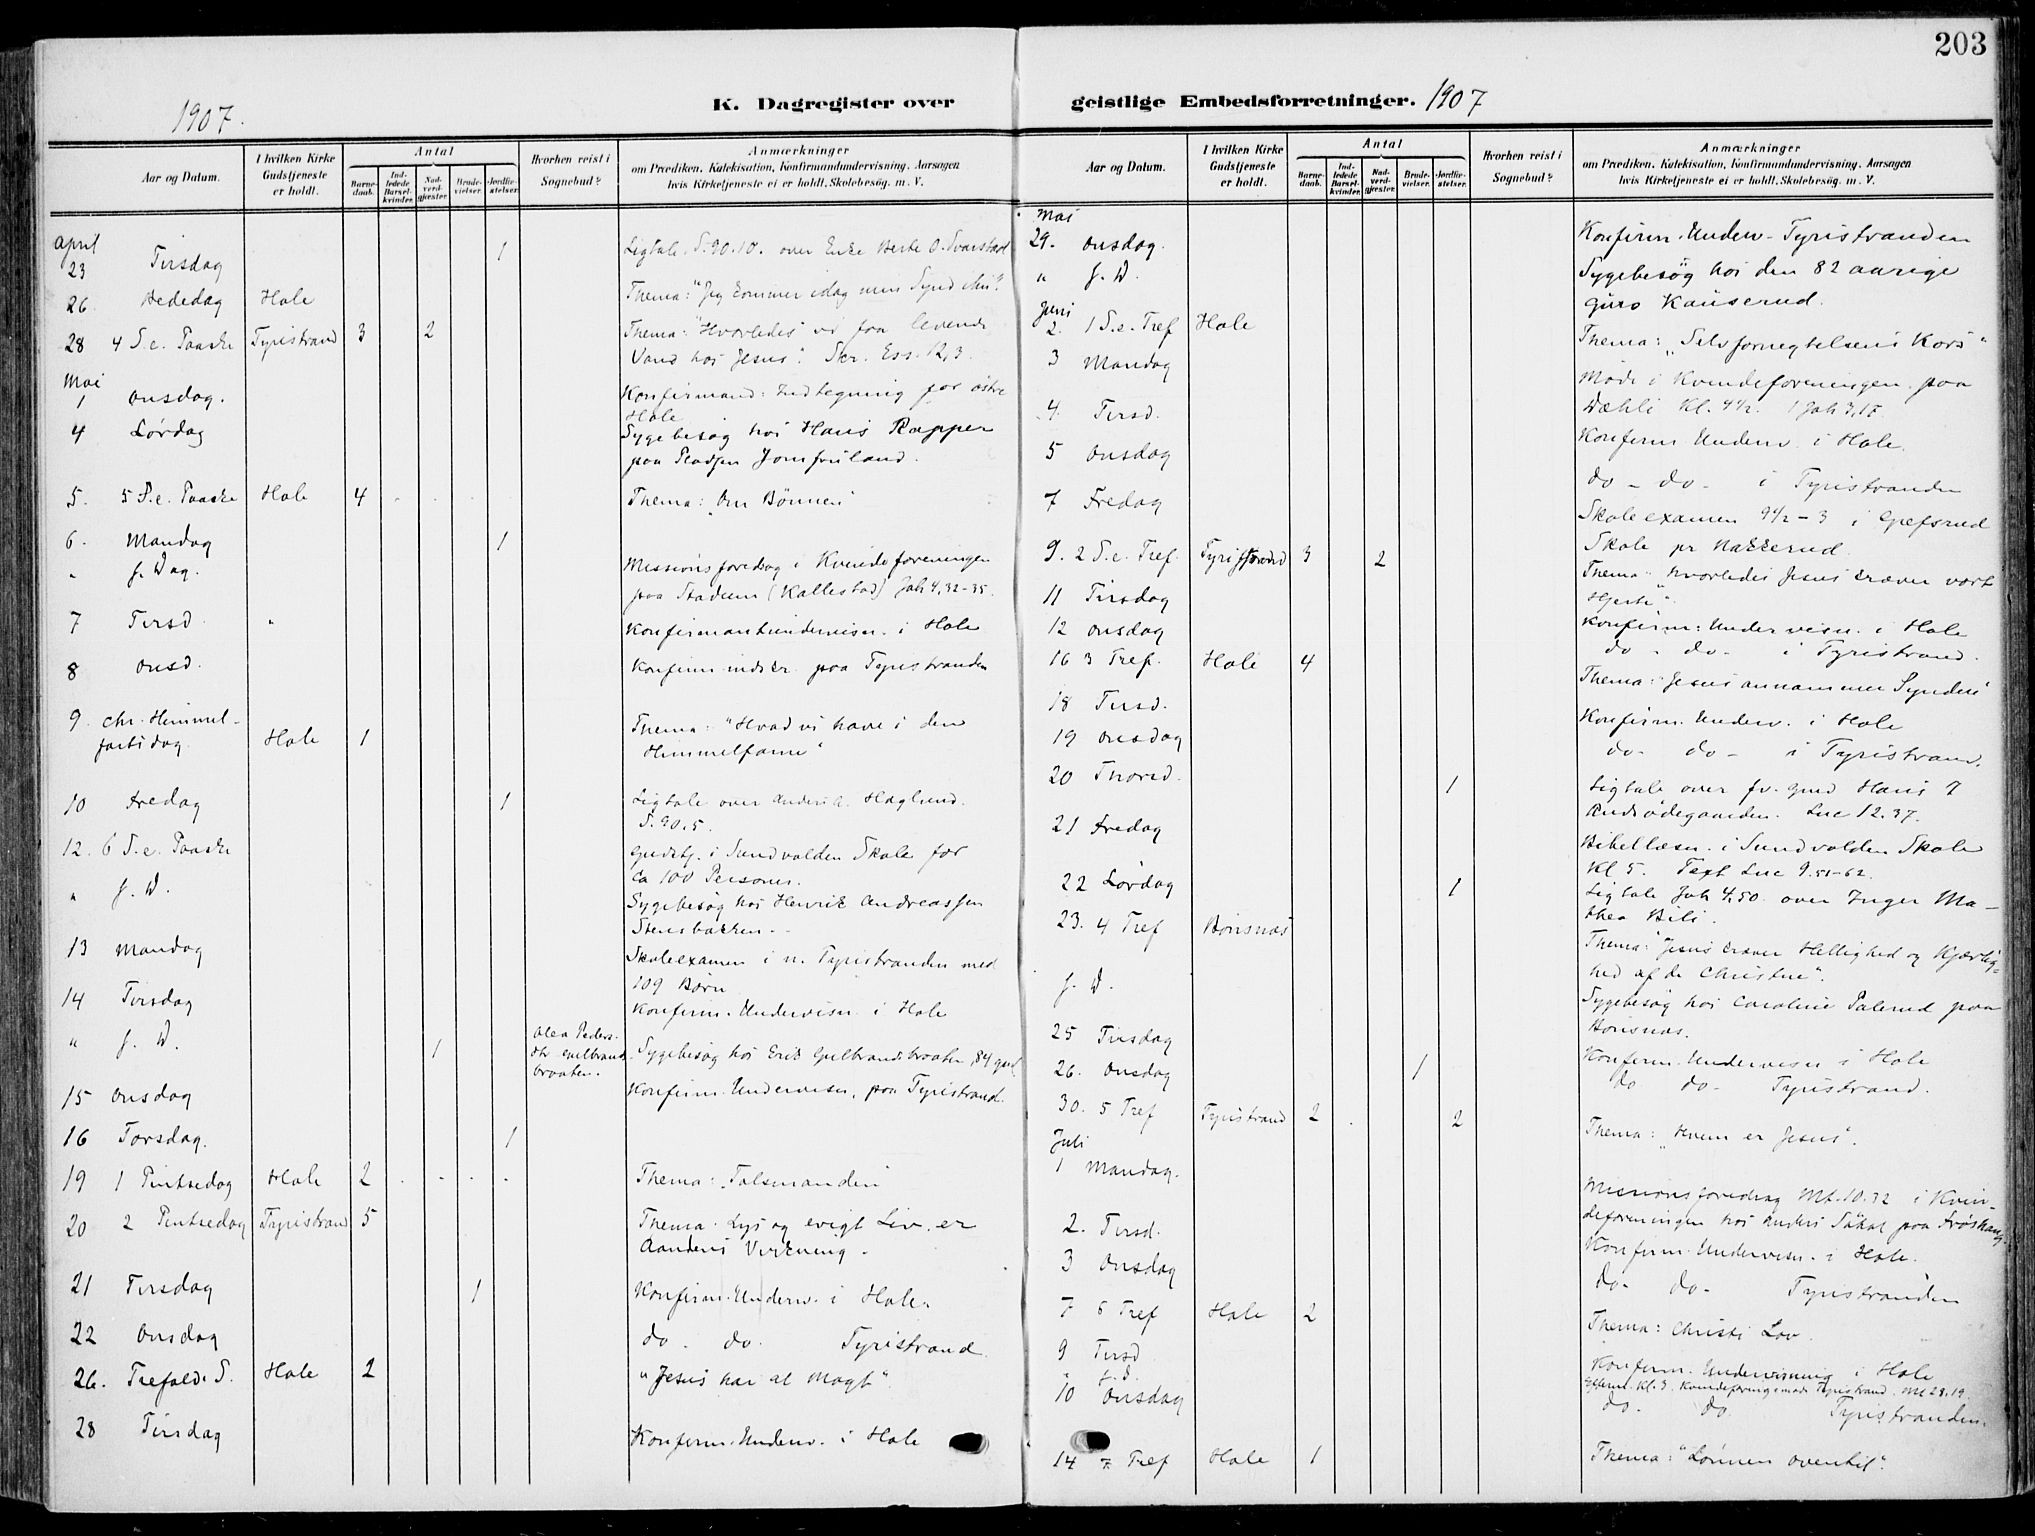 203
1907.
K. Dagregister over
Aar og Datum.
I hvilken Kirke Gudstjeneste er holdt.
Antal
Barne-daab.
Ind-ledede Barsel-kvinder.
Nad-verd-gjester.
Brude-vielser.
Jordfæ-stelser.
Hvorhen reist i Sognebud?
Anmærkninger
om Prædiken, Katekisation, Konfirmandundervisning, Aarsagen
hvis Kirketjeneste ei er holdt, Skolebesøg, m. V.
April
23 Tirsdag 1 Ligtale S. 90.10. over Enke Berte O. Svarstad
26. Bededag Hole Thema: "Jeg kommer idag min Synd ihu?
28 4 S. e. Paaske Tyristrand 3 2 Thema: "Hvorledes vi faa levende
Vand hos Jesus". Skr. Ess. 12,3.
Mai
1 Onsdag. Konfirmand: Indtegning for østre
Hole
4 Lørdag Sygebesøg hos Hans Rapper
paa Pladsen Jomfruland.
5. 5 S. e. Paaske Hole 4 Thema: "Om Bønnen"
6. Mandag 1
" s. Dag. Missionsforedrag i Kvindeforeningen
paa Stadum (Kallestad) Joh 4, 32-35.
7 Tirsd. " Konfirmantundervisn. i Hole
8 Onsd. Konfirm. indskr. paa Tyristranden
9. Chr. Himmel-
fartsdag. Hole 1 Thema: "Hvad vi have i den
Himmelfarne"
10 Fredag 1 Ligtale over Anders A. Haglund.
S. 90.5.
12. 6 S. e. Paaske Gudstj. i Sundvolden Skole for
ca 100 Personer.
" s. D. Sygebesøg hos Henrik Andreassen
Stensbakken. -
13 Mandag Skoleexamen i n. Tyristranden med
109 Børn
14 Tirsdag Konfirm. Undervisn. i Hole
" s. D. 1 Olea Peders-
dtr Gulbrands-
braaten. Sygebesøg hos Erik Gulbrandsbraaten, 84 gml
15 Onsdag Konfirm. Undervisn. paa Tyristrand.
16 Torsdag. 1
19 1 Pintsedag Hole 2 Thema: "Talsmanden"
20 2 Pintsedag Tyristrand 5 Thema: Lys og evigt Liv er
Aandens Virkning.
21 Tirsdag 1 Konfirm. Underv. i Hole.
22 Onsdag do. do. Tyristrand.
26. Trefold. S. Hole 2 "Jesus har al Magt"
28 Tirsdag Konfirm. Underv. i Hole
geistlige Embedsforretninger. 1907
Aar og Datum.
I hvilken Kirke Gudstjeneste er holdt.
Antal
Barne-daab.
Ind-ledede Barsel-kvinder.
Nad-verd-gjester.
Brude-vielser.
Jordfæ-stelser.
Hvorhen reist i Sognebud?
Anmærkninger
om Prædiken, Katekisation, Konfirmandundervisning, Aarsagen
hvis Kirketjeneste ei er holdt, Skolebesøg, m. V.
Mai
29. Onsdag. Konfirm. Underv. Tyristranden
" s. D. Sygebesøg hos den 82 aarige
Guro Kauserud.
Juni
2. 1 S. e. Tref Hole Thema: "Selvfornegtelsens Kors"
3 Mandag Møde i Kvindeforeningen paa
Dæhli Kl. 4½. 1 Joh 3,17.
4. Tirsd. Konfirm Underv. i Hole.
5 Onsdag do - do - i Tyristranden
7 Fredag Skoleexamen 9½ - 3 i Gjefsrud
Skole pr Nakkerud.
9. 2 S. e. Tref. Tyristrand 3 2 Thema: "Hvorledes Jesus kræver vort
Hjerte".
11 Tirsdag Konfirm: Undervisn. i Hole
12 Onsdag do - do - i Tyristrand.
16 3 Tref. Hole 4 Thema: "Jesus annammer Syndere"
18 Tirsd. Konfirm. Underv. i Hole
19 Onsdag do - do - i Tyristrand.
20 Thorsd. 1 Ligtale over fv. Gmd Hans
Rudsødegaarden. Luc 12.37.
21 Fredag Bibellæsn. i Sundvolden Skole
Kl 5. Text Luc 9.51-62.
22 Lørdag 1 Ligtale Joh 4,50 over Inger Ma-
thea Bili.
23. 4 Tref Bønsnæs Thema: "Jesus kræver Hellighed og Kjærlig-
hed af de Christne".
s. D. Sygebesøg hos Caroline Palerud paa
Bønsnæs.
25 Tirsdag Konfirm. Undervisn i Hole
26. Onsdag 1 do do - Tyristrand.
30. 5 Tref Tyristrand 2 2 Thema: "Hvem er Jesus".
Juli
1 Mandag. Missionsforedrag Mt. 10.32 i Kvin-
deforeningen hos Anders paa Frøshaug.
2. Tirsd. Konfirm. Undervisn. i Hole.
3 Onsdag do - do - Tyristranden
7 6 Tref Hole 2 Thema: Christi Lov.
9 Tirsd Konfirm. Undervisning i Hole
" s. D. Kl. 3. Kvindeforeningsmøde Tyristrand. Mt 28.19.
10 Onsdag do - do Tyristranden.
14 7 Tref Hole 1 Thema: "Lønnen oventil".